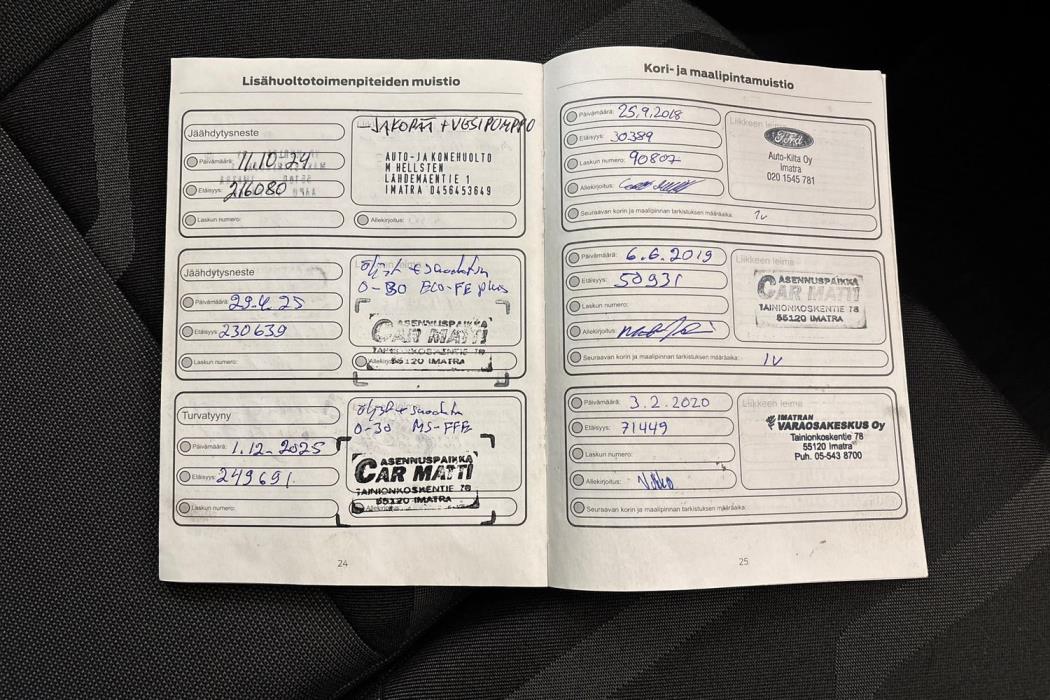 Lisähuoltotoimenpiteiden muistio
Jäähdytysneste
Päivämäärä: 11.10.24
Etäisyys: 216080
Laskun numero:
JAKOPÄÄ + VESIPUMPPU
AUTO-JA KONEHUOLTO
M HELLSTEN
LÄHDEMÄENTIE 1
IMATRA 0456453649
Allekirjoitus:
Jäähdytysneste
Päivämäärä: 29.4.25
Etäisyys: 230639
Laskun numero:
öljyt + suodatin
0-30 ECO-FE plus
ASENNUSPAIKKA
CAR MATTI
TAINIONKOSKENTIE 78
55120 IMATRA
Turvatyyny
Päivämäärä: 1.12-2025
Etäisyys: 249691
Laskun numero:
öljyt + suodatin
0-30 MS-FFE
ASENNUSPAIKKA
CAR MATTI
TAINIONKOSKENTIE 78
55120 IMATRA
Allekirjoitus:
24
Kori- ja maalipintamuistio
Päivämäärä: 25.9.2018
Etäisyys: 30389
Laskun numero: 90807
Allekirjoitus:
Seuraavan korin ja maalipinnan tarkistuksen määräaika: 1v
Liikkeen leima
Ford
Auto-Kilta Oy
Imatra
020 1545 781
Päivämäärä: 6.6.2019
Etäisyys: 50931
Laskun numero:
Allekirjoitus:
Seuraavan korin ja maalipinnan tarkistuksen määräaika: 1v
Liikkeen leima
ASENNUSPAIKKA
CAR MATTI
TAINIONKOSKENTIE 78
55120 IMATRA
Päivämäärä: 3.2.2020
Etäisyys: 71449
Laskun numero:
Allekirjoitus:
Seuraavan korin ja maalipinnan tarkistuksen määräaika:
Liikkeen leima
IMATRAN
VARAOSAKESKUS Oy
Tainionkoskentie 78
55120 Imatra
Puh. 05-543 8700
25